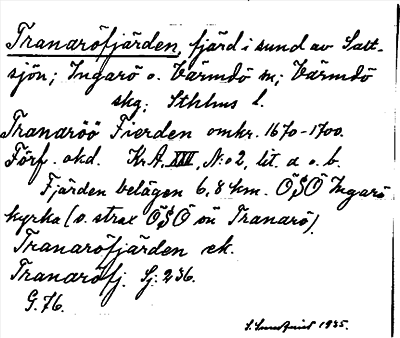 Tranaröfjärden, fjärd i sund av Salt-
sjön; Ingarö o. Värmdö sn; Värmdö
skg; Sthlms l.
Tranaröö Fierden omkr. 1670-1700.
Förf. okd. Kr.A. XIII, N:o 2, lit. a o. b.
Fjärden belägen 6,8 km. ÖSÖ Ingarö
kyrka (o. strax ÖSÖ om Tranarö).
Tranaröfjärden ek.
Tranaröfj. Sj: 236.
G. 76.
S. Sundqvist 1935.